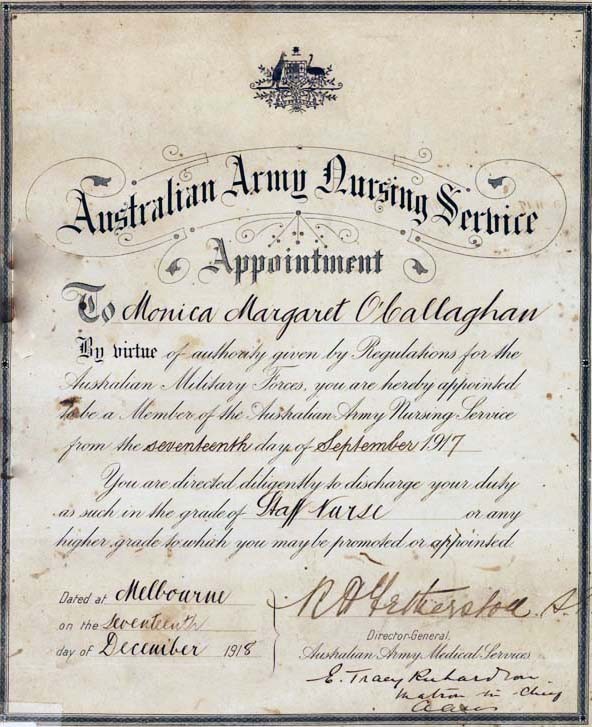 Australian Army Nursing Service
Appointment
To Monica Margaret O'Callaghan
By virtue of authority given by Regulations for the
Australian Military Forces, you are hereby appointed
to be a Member of the Australian Army Nursing Service
from the seventeenth day of September 1917
You are directed diligently to discharge your duty
as such in the grade of Staff Nurse or any
higher grade to which you may be promoted or appointed
Dated at Melbourne
on the seventeenth
day of December 1918
R H Fetherston
Director-General,
Australian Army Medical Services
E. Tracy Richardson
Matron in Chief